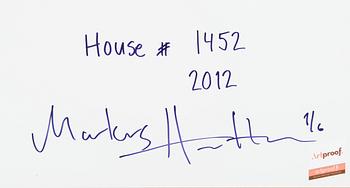 House # 1452
2012
Markus H
1/6
Artproof